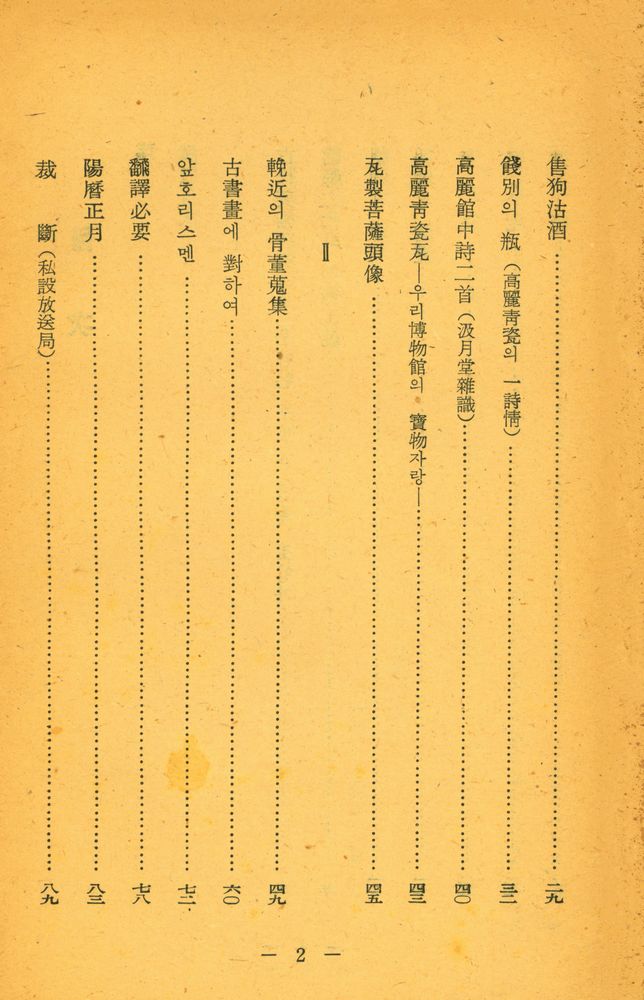 售狗沽酒 二九
餞別의 瓶 (高麗靑瓷의 一詩情) 三二
高麗館中詩二首 (汲月堂雜識) 四〇
高麗靑瓷瓦—우리博物館의 寶物자랑— 四三
瓦製菩薩頭像 四五
Ⅱ
輓近의 骨董蒐集 四九
古書畫에 對하여 六〇
앞호리스멘 七二
飜譯必要 七八
陽曆正月 八三
裁 斷 (私設放送局) 八九
— 2 —